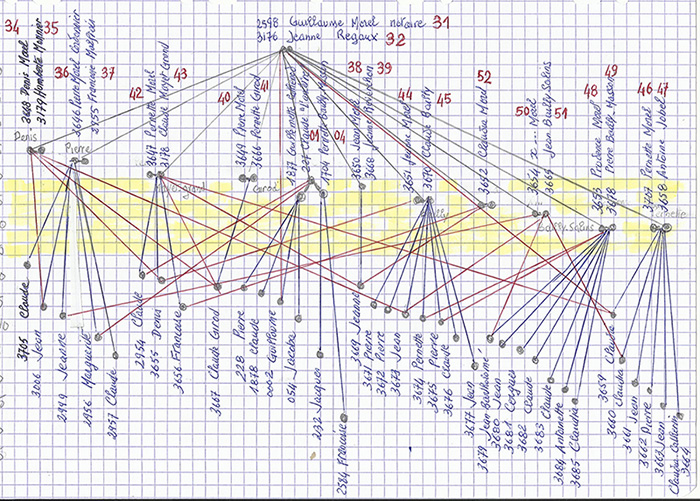 2598 Guillaume Morel notaire 31
3176 Jeanne Regaux 32
34 35
3668 Denis Morel
3179 Humberte Monnier
36 37
3666 Pierre Morel
2955 Francoise
42 43
3647 Pernette Morel
3178 Claude Mayet Gorod
40 41
3649 Pierre Morel
3666 Pernette Gorod
01 04
1704 Pernette Bailly
38 39
3650 Jean Morel
3668 Jeanne
44 45
3651 Jeanne Morel
3670 Claude Bailly
52
3672 Claudia Morel
50 51
3654 x ... Morel
3665 Jean Bailly Salins
48 49
3653 Prudence Morel
3678 Pierre Bailly
46 47
3707 Pernette Morel
3658 Antoine Jobel
Denis
Pierre
Gorod
Bailly Salins
3705 Claude
3006 Jean
2949 Jeanne
2956 Marguerite
2957 Claude
2954 Claude
3655 Denis
3656 Francoise
3667 Claude Gorod
228 Pierre
1878 Claude
0002 Guillaume
054 Jacoba
232 Jaques
2584 Francoise
3669 Jeanne
3671 Pierre
3672 Pierre
3673 Jean
3674 Pernette
3675 Pierre
3676 Claude
3677 Jean
3679 Jean Barthelemé
3680 Jean
3681
3682 Claude
3683 Claude
3684 Antoinette
3685 Claudia
3659 Claude
3660 Claudia
3661 Jean
3662 Pierre
3663 Jean
3664 Claudia